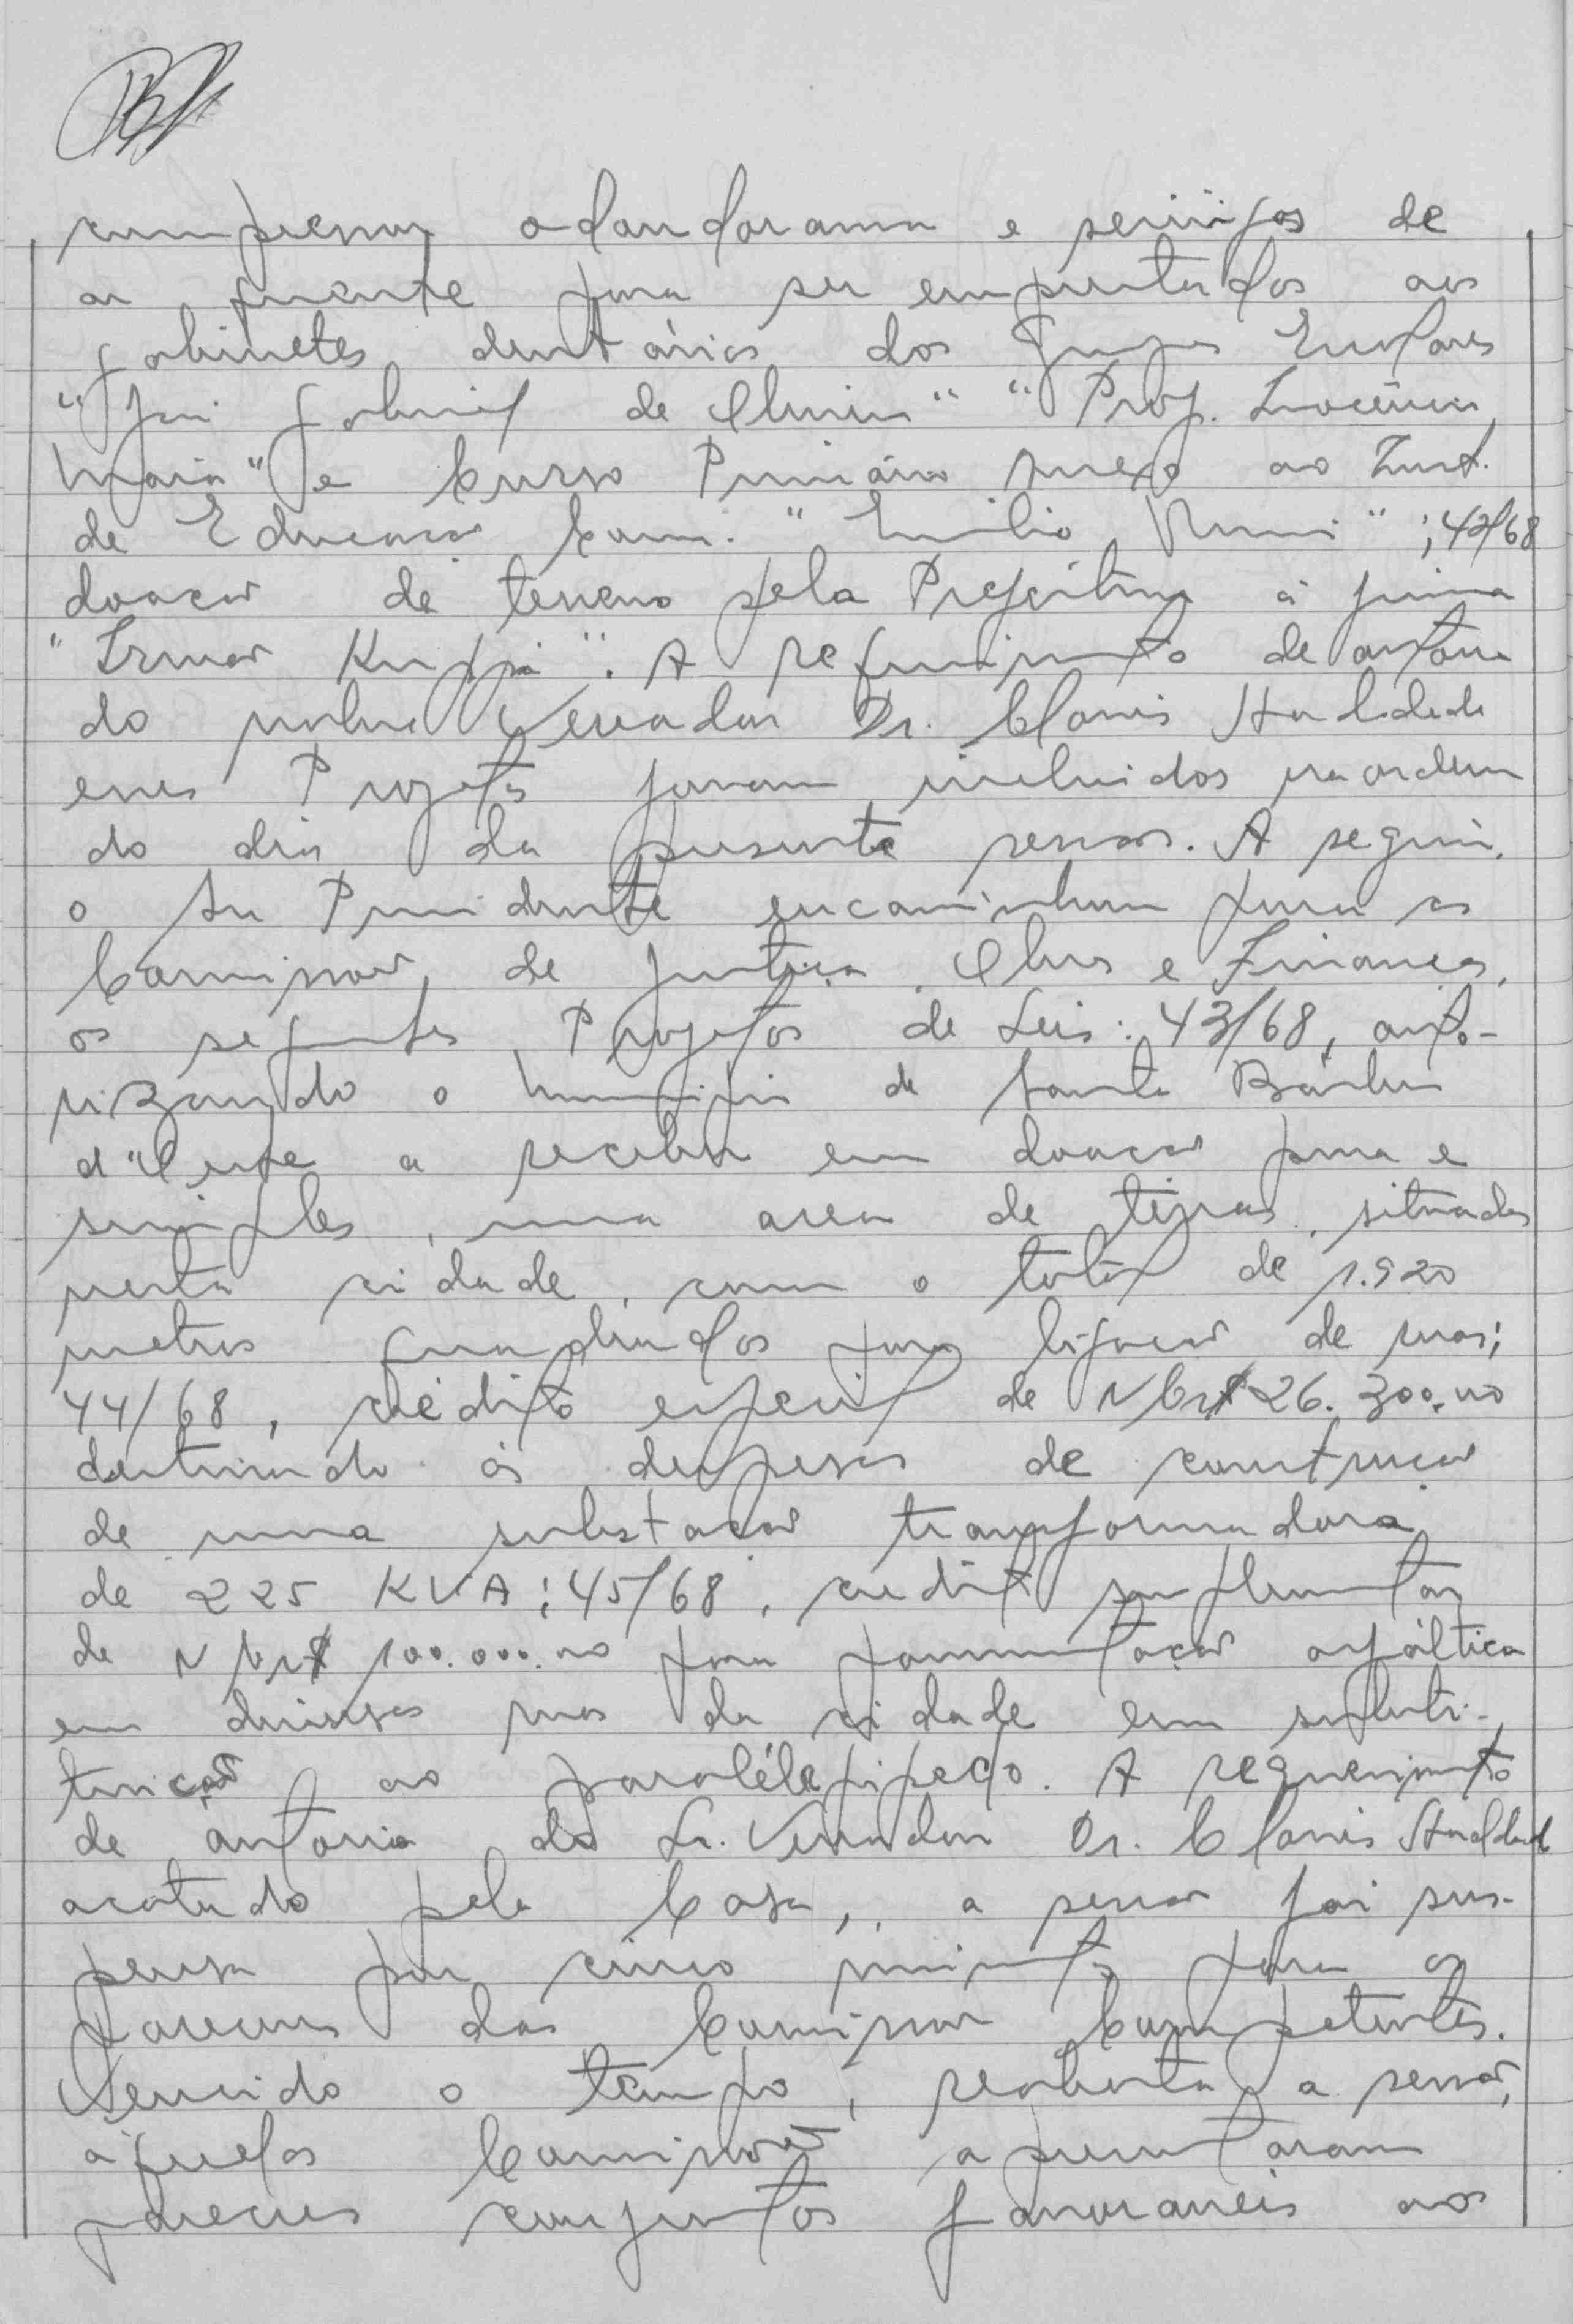 compressor odandorama e seringas de
ar quente para ser emprestados aos
gabinetes dentários dos Grupos Escolares
"José Gabriel de Oliveira" "Prof. Inocêncio
Maia" e Curso Primário anexo ao Inst.
de Educação Com. "Emilio Romi"; 42/68
doação de terreno pela Prefeitura à firma
"Irmãos". A requerimento de autoria
do nobre Vereador Dr. Clovis
esses Projetos foram incluidos na ordem
do dia da presente sessão. A seguir,
o Sr Presidente encaminhou para as
Comissões de Justiça, Obras e Finanças,
os seguintes Projetos de Leis: 43/68, auto-
rizando o Municipio de Santa Bárbara
d"Oeste a receber em doação pura e
simples, uma area de terras, situadas
nesta cidade, com o total de 1.920
metros quadrados para ligação de ruas;
44/68, crédito especial de NCr$ 26.300,00
destinado às despesas de construção
de uma subestação transformadora
de 225 KVA; 45/68, credito suplementar
de NCr$ 100.000.00 para pavimentação asfáltica
em diversas ruas da cidade em substi-
tuição ao paralélepipedo. A requerimento
de autoria do Sr. Vereador Dr. Clovis
acatado pela Casa,, a sessão foi sus-
pensa por cinco minutos para os
pareceres das Comissões Competentes.
Vencido o tempo, reaberta a sessão,
àquelas Comissões apresentaram
pareceres conjuntos favoraveis aos